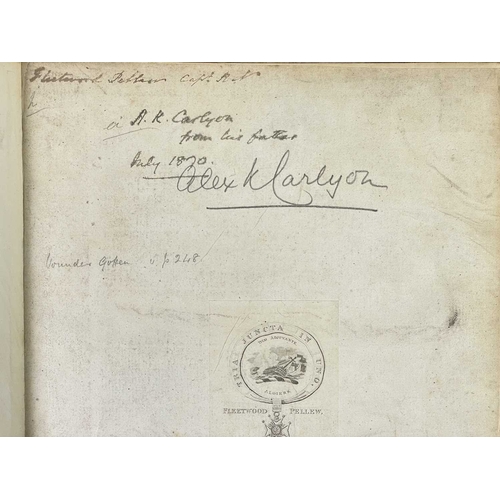 Fleetwood Pellew Capt. R.N.
A. K. Carlyon
from his father
July 1870.
Alex K Carlyon
Vounder Gogen v. p 248.
TRIA JUNCTA IN UNO.
DEO ADJUVANTE
ALGIERS
FLEETWOOD PELLEW.